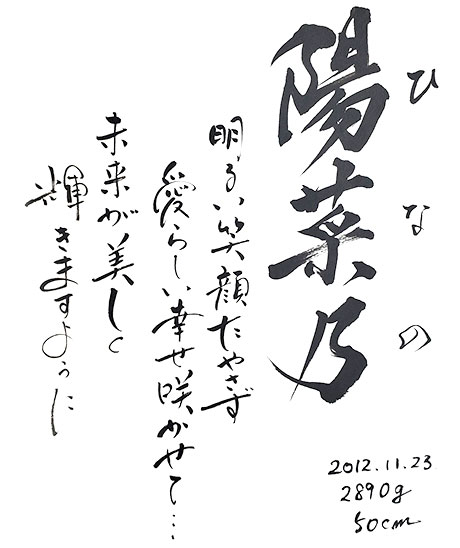 陽菜乃
ひなの
明るい笑顔たやさず
愛らしい幸せ咲かせて…
未来が美しく
輝きますように
2012.11.23
2890g
50cm